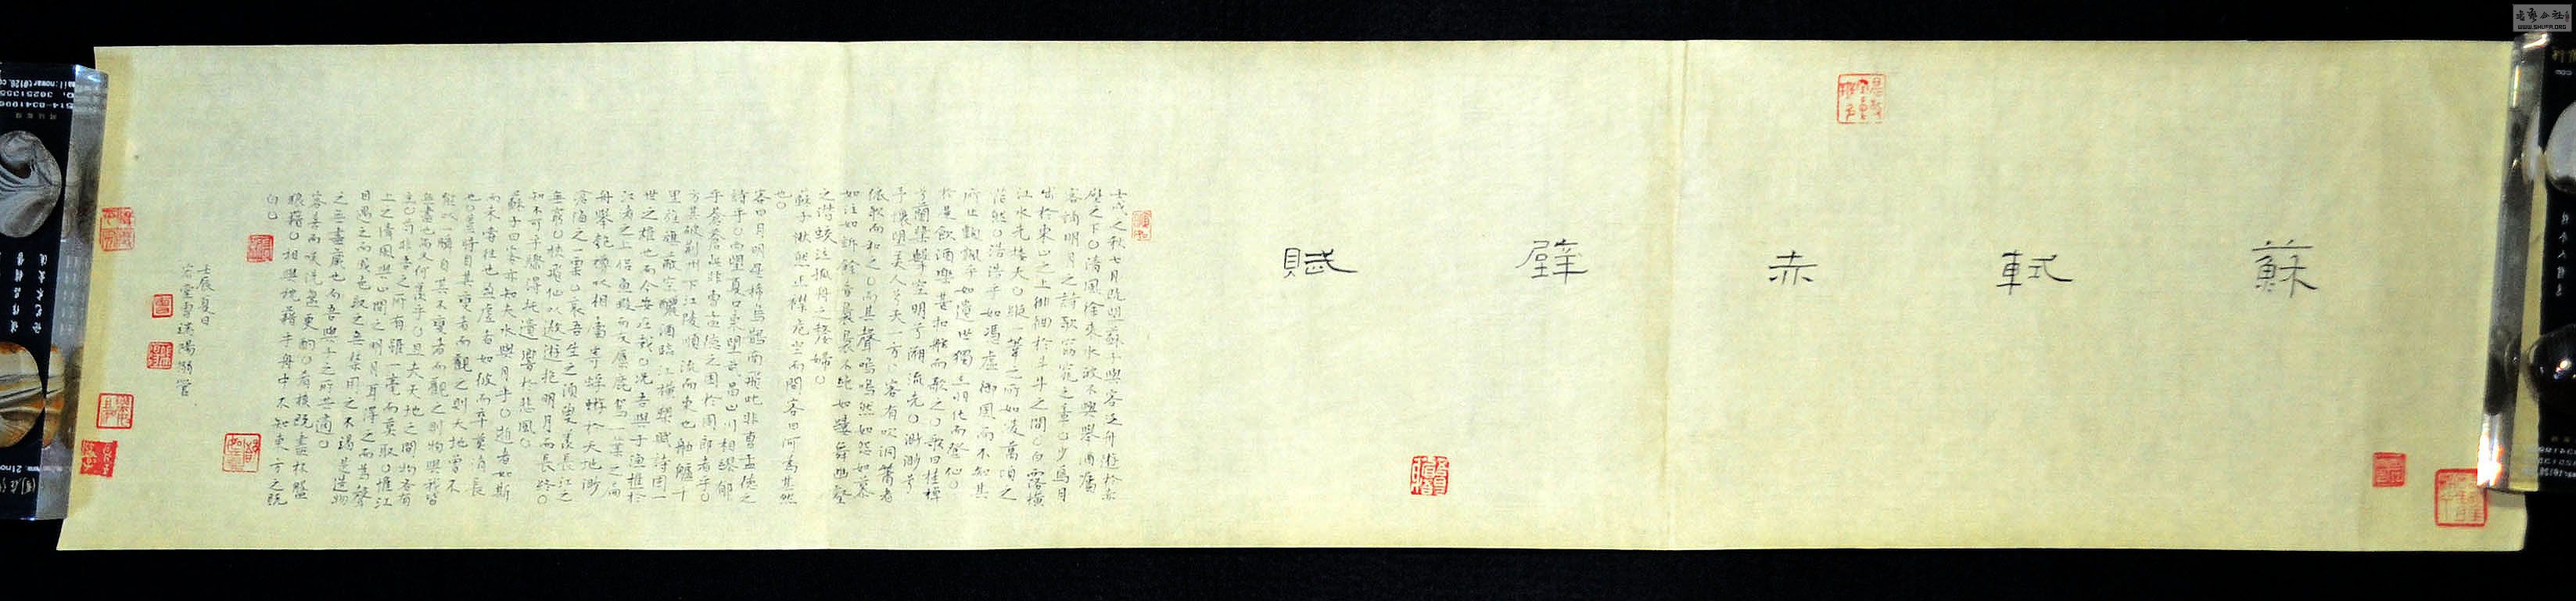 蘇軾赤壁賦
壬戌之秋七月既望蘇子與客泛舟遊於赤
壁之下○清風徐來水波不興舉酒屬
客誦明月之詩歌窈窕之章○少焉月
出於東山之上徘徊於斗牛之間○白露橫
江水光接天○縱一葦之所如凌萬頃之
茫然○浩浩乎如馮虛御風而不知其
所止飄飄乎如遺世獨立羽化而登仙○
於是飲酒樂甚扣舷而歌之○歌曰桂棹
兮蘭槳擊空明兮溯流光○渺渺兮
予懷望美人兮天一方○客有吹洞簫者
依歌而和之○而其聲嗚嗚然如怨如慕
如泣如訴餘音裊裊不絕如縷舞幽壑
之潛蛟泣孤舟之嫠婦○
蘇子愀然正襟危坐而問客曰何為其然
也○
客曰月明星稀烏鵲南飛此非曹孟德之
詩乎○西望夏口東望武昌山川相繆郁
乎蒼蒼此非曹孟德之困於周郎者乎○
方其破荊州下江陵順流而東也舳艫千
里旌旗蔽空釃酒臨江橫槊賦詩固一
世之雄也而今安在哉○況吾與子漁樵於
江渚之上侶魚蝦而友麋鹿駕一葉之扁
舟舉匏樽以相屬寄蜉蝣於天地渺
滄海之一粟○哀吾生之須臾羨長江之
無窮○挾飛仙以遨遊抱明月而長終○
知不可乎驟得托遺響於悲風○
蘇子曰客亦知夫水與月乎○逝者如斯
而未嘗往也盈虛者如彼而卒莫消長
也○蓋將自其變者而觀之則天地曾不
能以一瞬自其不變者而觀之則物與我皆
無盡也而又何羨乎○且夫天地之間物各有
主○苟非吾之所有雖一毫而莫取○惟江
上之清風與山間之明月耳得之而為聲
目遇之而成色取之無禁用之不竭是造物
之無盡藏也而吾與子之所共適○
客喜而笑洗盞更酌○肴核既盡杯盤
狼藉○相與枕藉乎舟中不知東方之既
白○
壬辰夏日